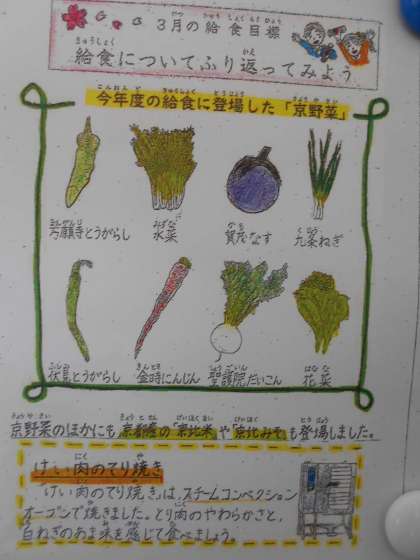 3月の給食目標
給食についてふり返ってみよう
今年度の給食に登場した「京野菜」
万願寺とうがらし
水菜
賀茂なす
九条ねぎ
伏見とうがらし
金時にんじん
聖護院だいこん
花菜
京野菜のほかにも京都産の「京北米」や「京北みそ」も登場しました。
けい肉のてり焼き
「けい肉のてり焼き」は、スチームコンベクション
オーブンで焼きました。とり肉のやわらかさと、
白ねぎのあま味を感じて食べましょう。